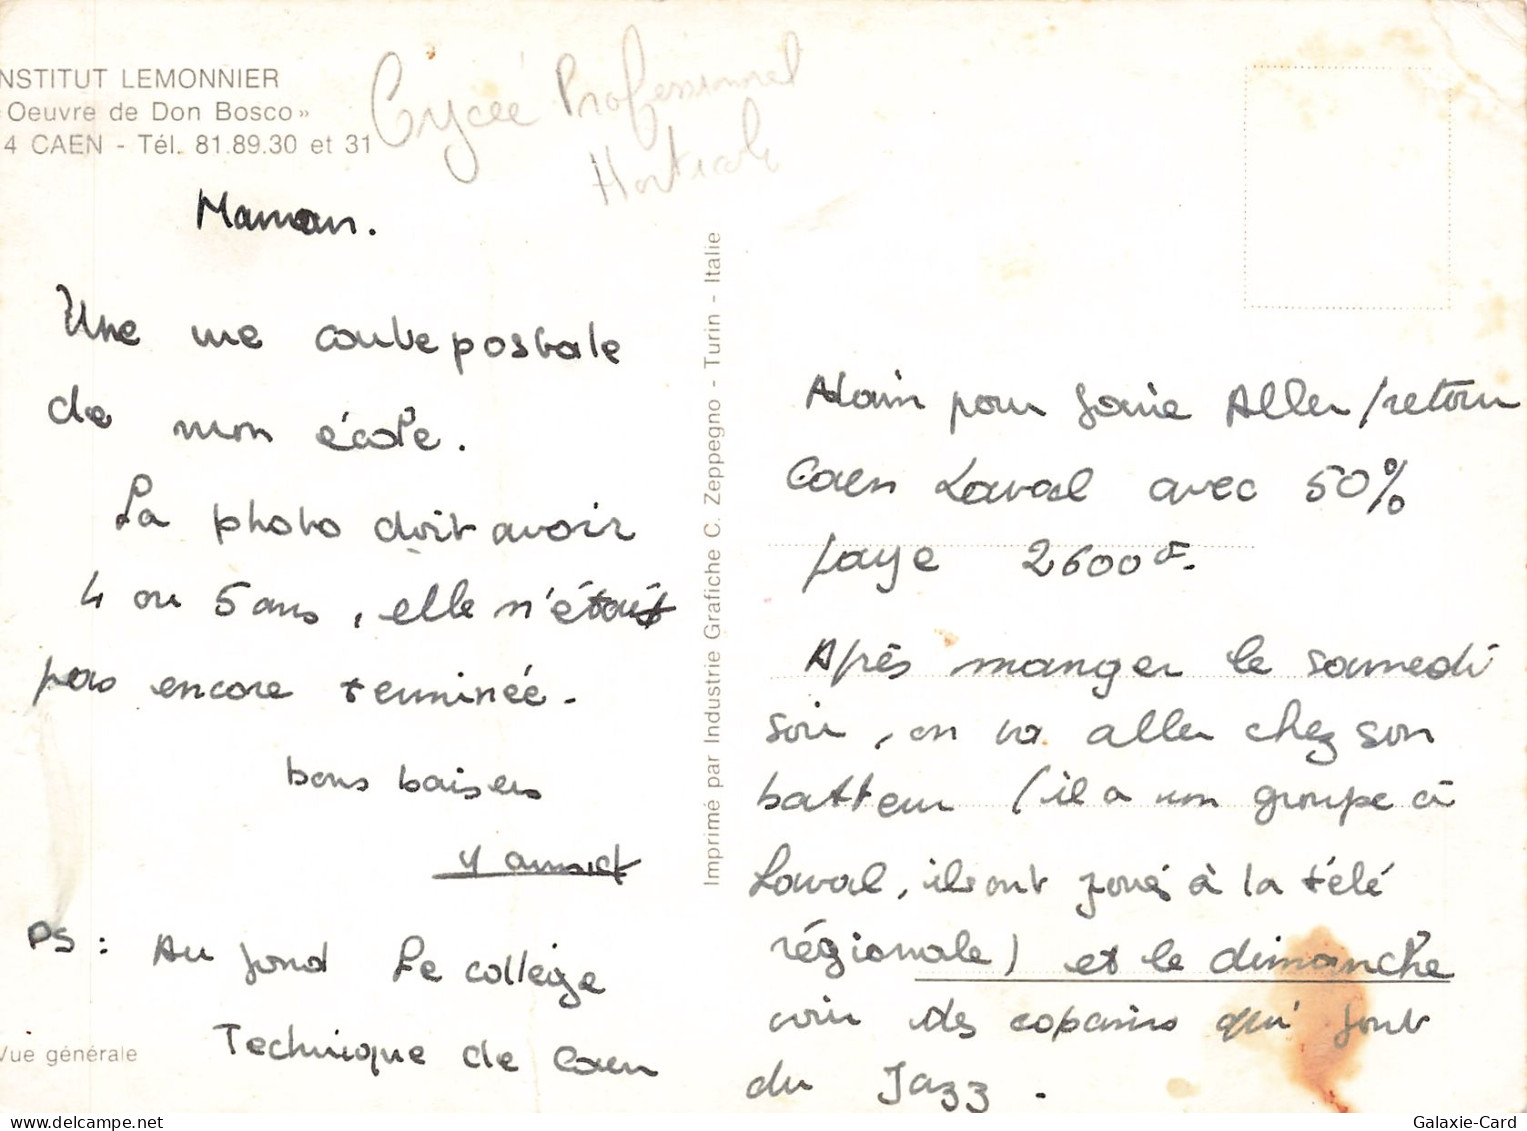 NSTITUT LEMONNIER
Oeuvre de Don Bosco»
4 CAEN - Tél. 81.89.30 et 31
Lycée Professionnel
Horticole
Maman.
Une vue carte postale
de mon école.
La photo doit avoir
4 ou 5 ans, elle n'était
pas encore terminée.
bons baisers
Yannick
PS : Au fond Le collège
Technique de Caen
Vue générale
Imprimé par Industrie Grafiche C. Zeppegno - Turin - Italie
Alain pour faire Aller/retour
Caen Laval avec 50%
paye 2600F.
Après manger le samedi
soir, on va aller chez son
batteur (il a un groupe à
Laval, ils ont joués à la télé
régionale) et le dimanche
voir des copains qui font
du Jazz.
Galaxie-Card